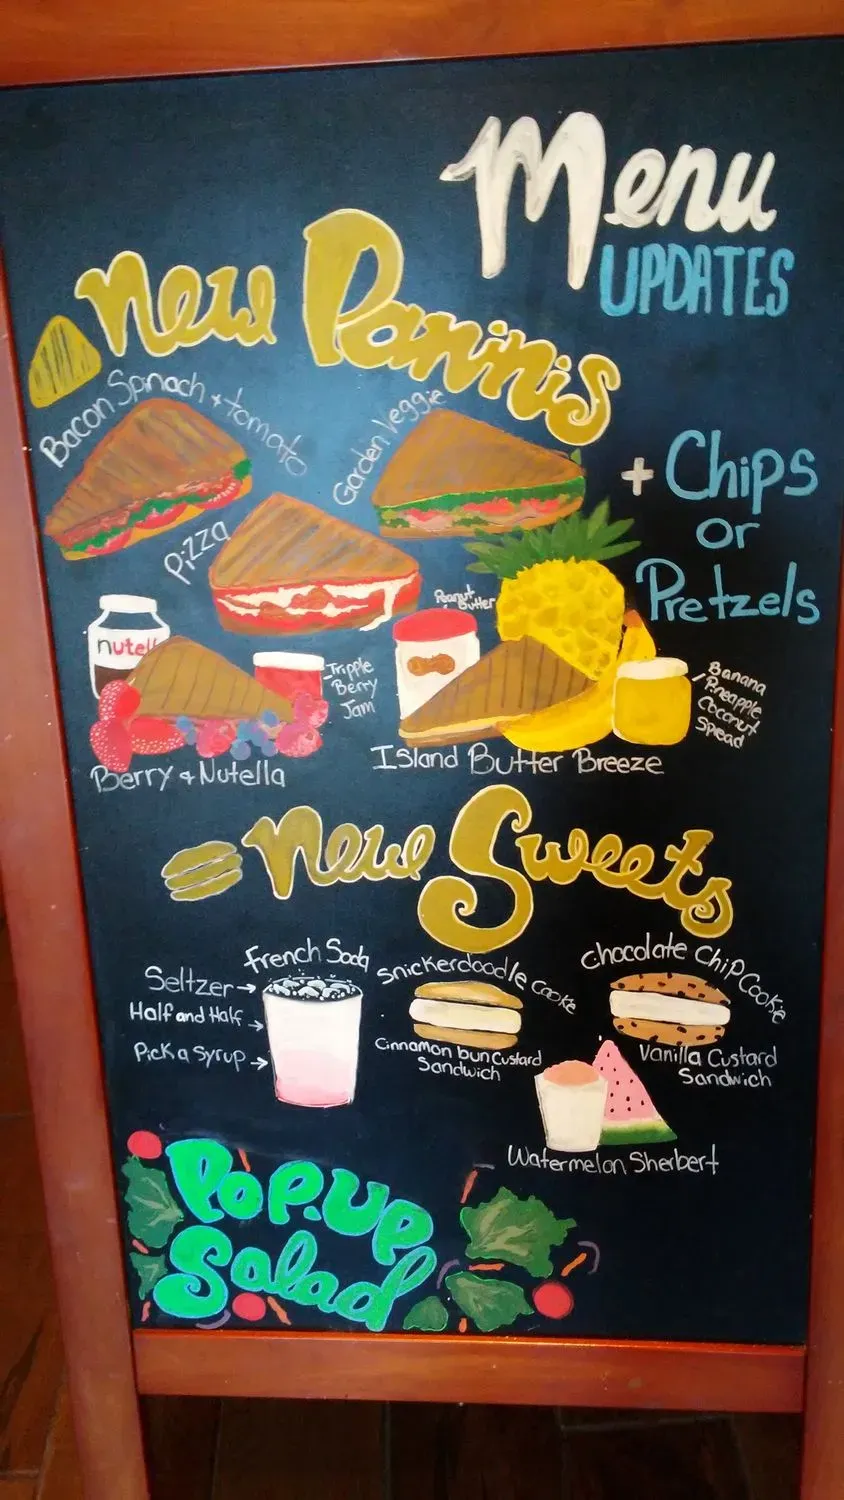 Menu
UPDATES
New Paninis
Bacon Spinach + tomato
Garden Veggie
+ Chips
or
Pretzels
Pizza
Peanut
Butter
nutell
Tripple
Berry
Jam
Banana
Pineapple
Coconut
Spread
Berry + Nutella
Island Butter Breeze
New Sweets
French Soda
Seltzer →
Half and Half →
Pick a Syrup →
Snickerdoodle Cookie
Cinnamon bun Custard
Sandwich
Chocolate Chip Cookie
Vanilla Custard
Sandwich
Watermelon Sherbert
Pop.Up
Salad